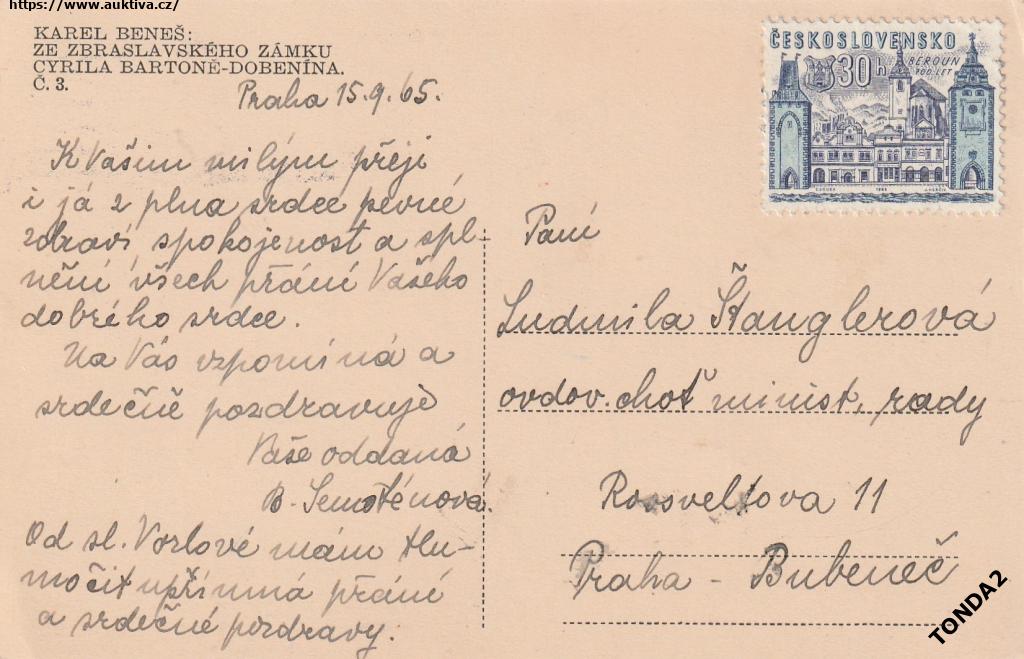 https://www.auktiva.cz/
KAREL BENEŠ:
ZE ZBRASLAVSKÉHO ZÁMKU
CYRILA BARTONĚ-DOBENÍNA.
Č. 3.
Praha 15.9.65.
K Vašim milým přeji
i já z plna srdce pevné
zdraví, spokojenost a spl-
nění všech přání Vašeho
dobrého srdce.
Na Vás vzpomíná a
srdečně pozdravuje
Vaše oddaná
B. Semoténová.
Od sl. Vorlové mám tlu-
močit upřímná přání
a srdečné pozdravy.
ČESKOSLOVENSKO
30h
BEROUN
700 LET
1965
Paní
Ludmila Štanglerová
ovdov. choť minist. rady
Roosveltova 11
Praha - Bubeneč
TONDA2